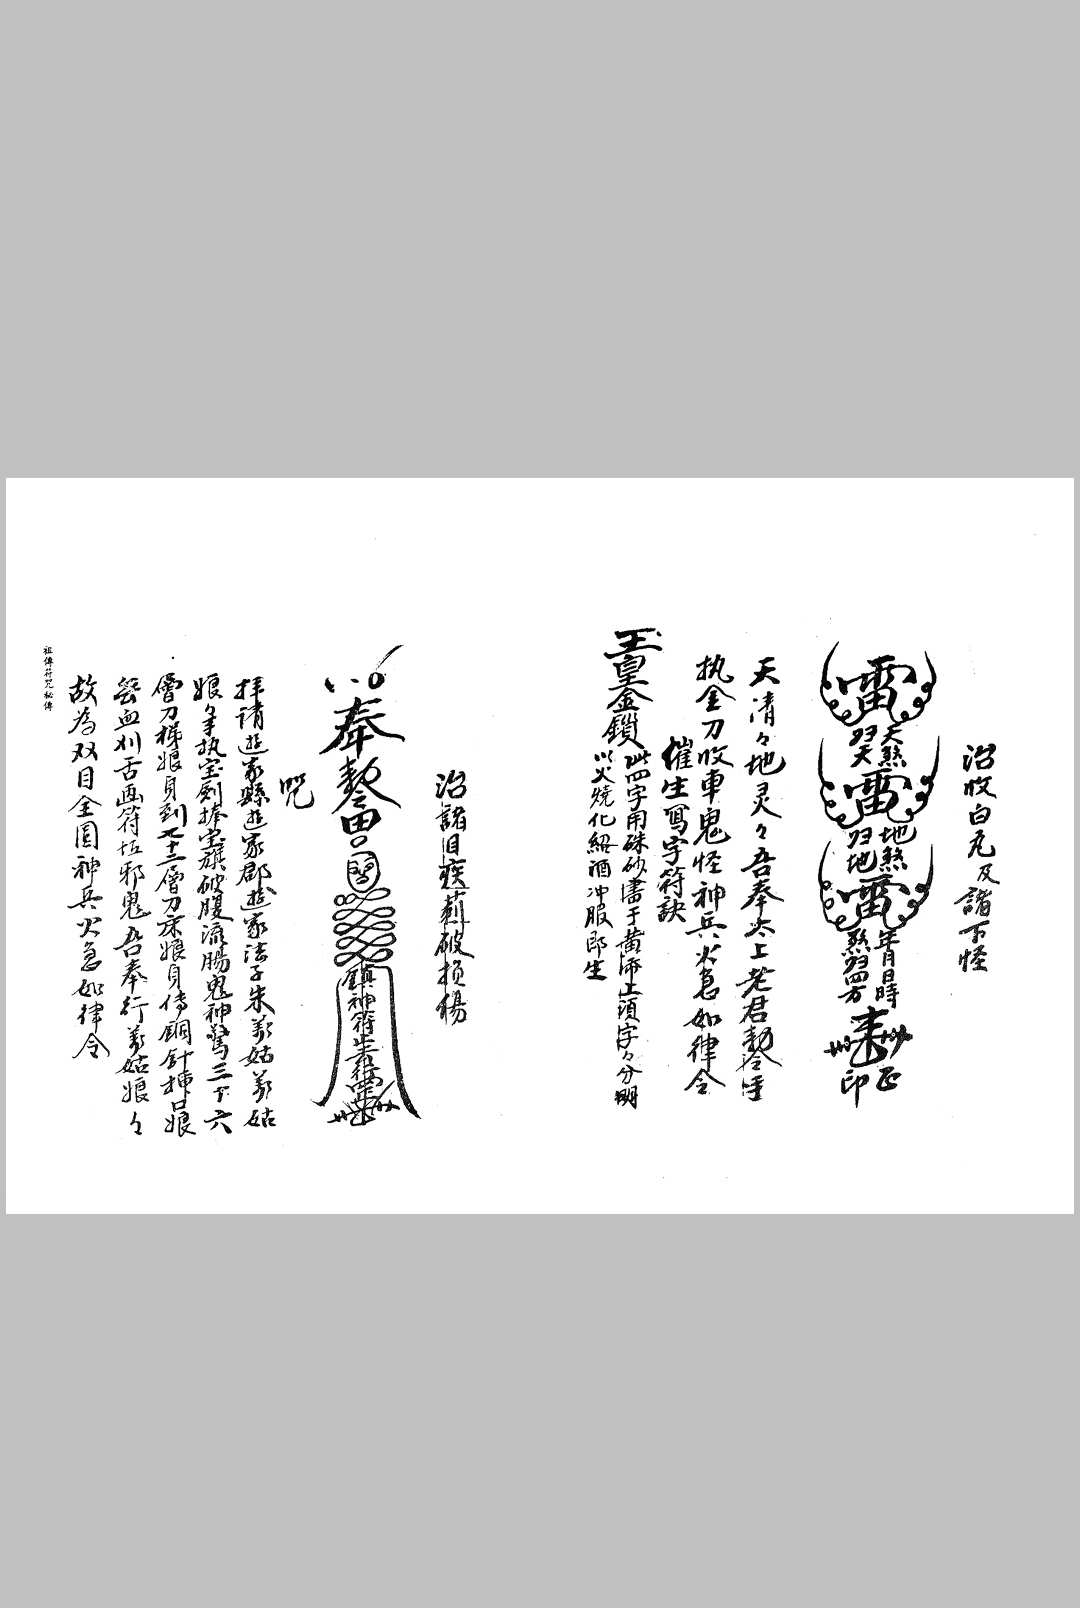 治收白丸及諸下怪
雷
天煞
归天
雷
地煞
归地
雷
年月日時
煞归四方
正
印
天清々地灵々吾奉太上老君勅令手
执金刀收車鬼怪神兵火急如律令
催生寫字符訣
玉皇金鎖
此四字用硃砂書于黄币上須字々分明
以火燒化紹酒冲服即生
治諸目疾 破损傷
奉勅
鎮神符
咒
拜請遊家縣遊家郡遊家法子朱姑姑
娘手执宝剑捧宝旗破腹流腸鬼神驚三十六
層刀梯娘自到七十二層刀床娘自傳銅針挿口娘
血刈舌画符 邪鬼吾奉行姑娘々
故為双目全圓神兵火急如律令
祖傳符咒秘傳